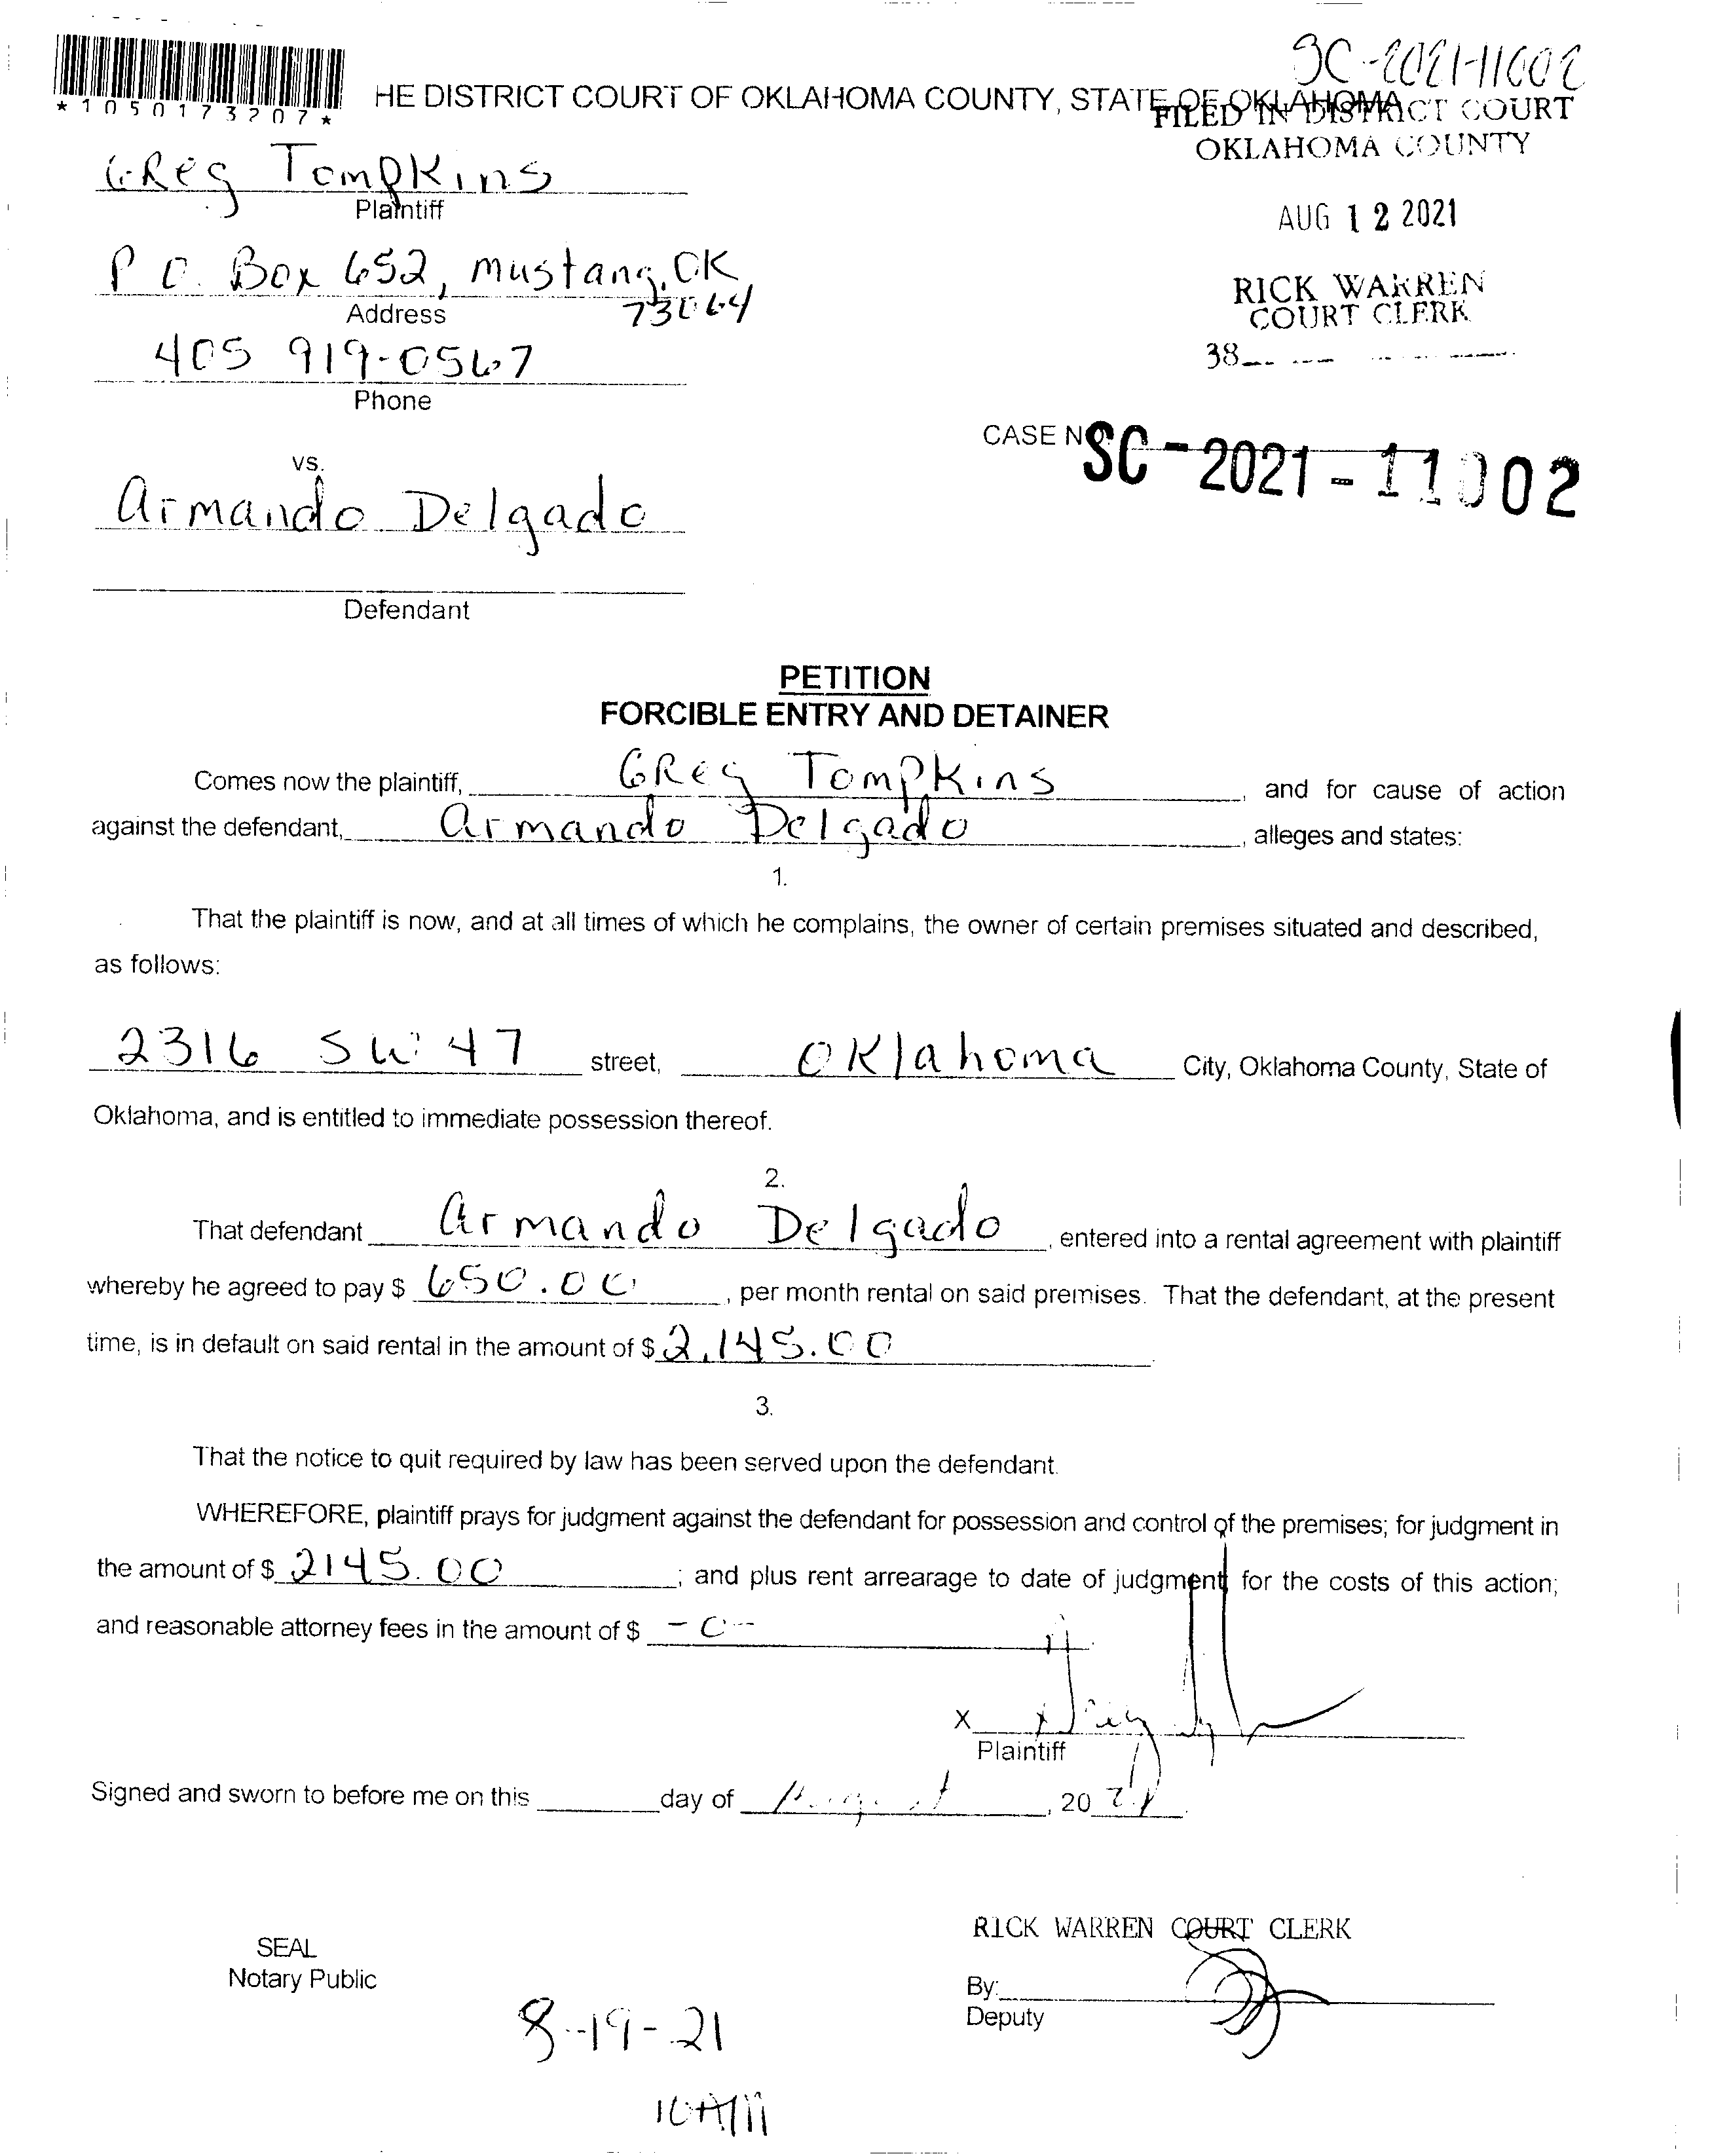 SC-2021-11002
*1050173207*
HE DISTRICT COURT OF OKLAHOMA COUNTY, STATE OF OKLAHOMA
FILED IN DISTRICT COURT
OKLAHOMA COUNTY
Greg Tompkins
Plaintiff
AUG 12 2021
P O. Box 652, Mustang, OK
73064
Address
RICK WARREN
COURT CLERK
405 919-0567
38
Phone
CASE NO. SC-2021-11002
vs.
Armando Delgado
Defendant
PETITION
FORCIBLE ENTRY AND DETAINER
Comes now the plaintiff, Greg Tompkins, and for cause of action
against the defendant, Armando Delgado, alleges and states:
1.
That the plaintiff is now, and at all times of which he complains, the owner of certain premises situated and described,
as follows:
2316 SW 47 street, Oklahoma City, Oklahoma County, State of
Oklahoma, and is entitled to immediate possession thereof.
2.
That defendant Armando Delgado, entered into a rental agreement with plaintiff
whereby he agreed to pay $ 650.00, per month rental on said premises. That the defendant, at the present
time, is in default on said rental in the amount of $ 2,145.00.
3.
That the notice to quit required by law has been served upon the defendant.
WHEREFORE, plaintiff prays for judgment against the defendant for possession and control of the premises; for judgment in
the amount of $ 2145.00; and plus rent arrearage to date of judgment for the costs of this action;
and reasonable attorney fees in the amount of $ -0-.
X
Plaintiff
Signed and sworn to before me on this day of August, 2021.
RICK WARREN COURT CLERK
SEAL
Notary Public
By:
Deputy
8-19-21